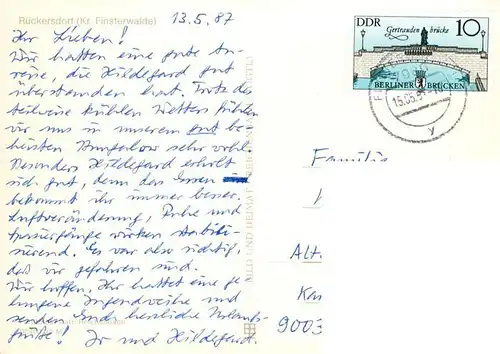 Rückersdorf (Kr. Finsterwalde)
13.5.87
Ihr Lieben!
Wir hatten eine gute An-
reise, die Hildegard gut
überstanden hat. Trotz des
teilweise kühlen Wetters fühlen
wir uns in unserem gut be-
heizten Bungalow sehr wohl.
Besonders Hildegard erholt
sich gut, denn das Essen
bekommt ihr immer besser.
Luftveränderung, Ruhe und
Spaziergänge wirken stabili-
sierend. Es war also richtig,
daß wir gefahren sind.
Wir hoffen, Ihr hattet eine ge-
lungene Jugendweihe und
senden Euch herzliche Urlaubs-
grüße! und Hildegard.
DDR
10
Gertraudenbrücke
BERLINER BRÜCKEN
15.05.
y
Familie
Alt
Ka
9003